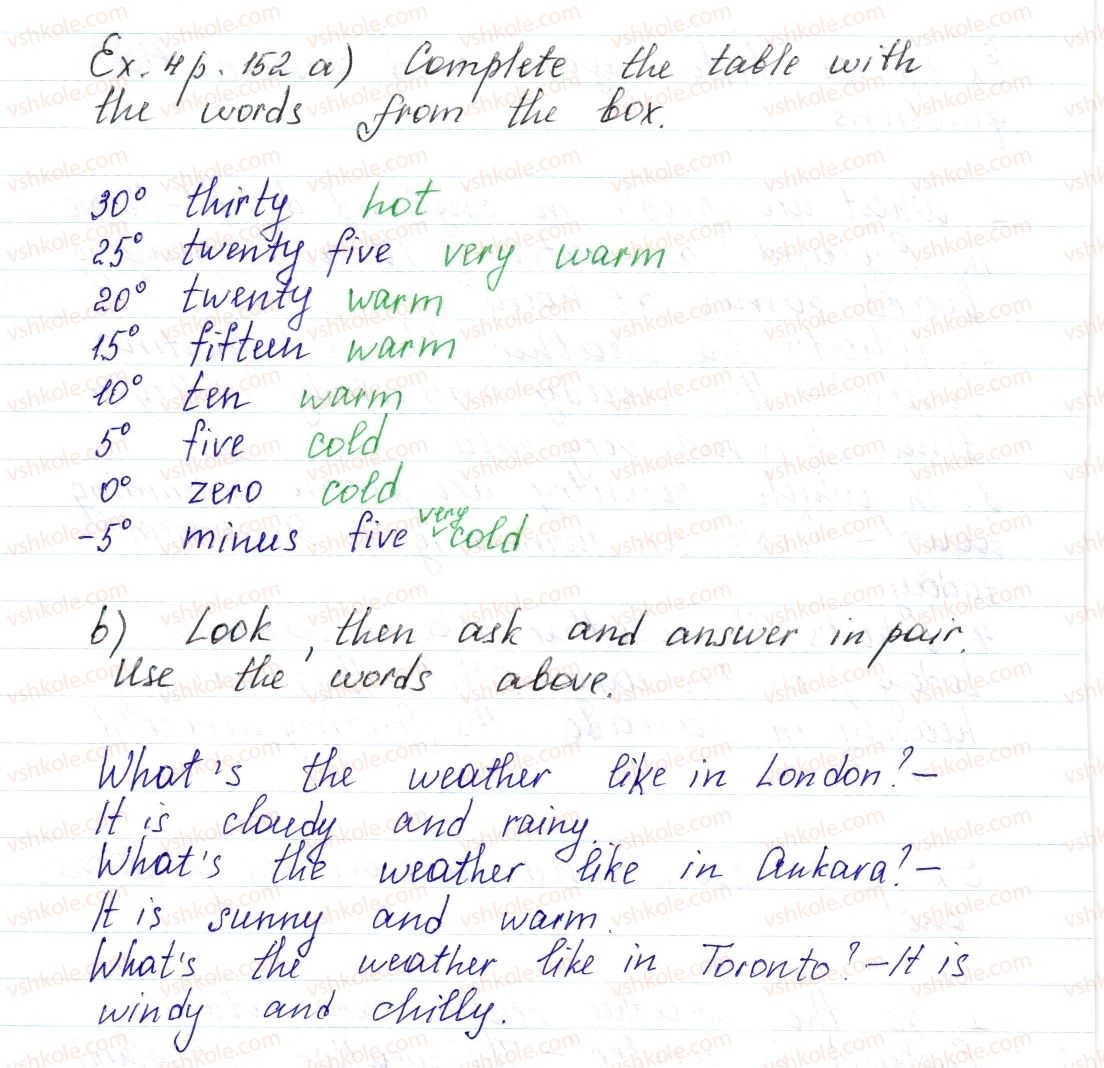 Ex. 4 p. 152 a) Complete the table with
the words from the box.
30° thirty hot
25° twenty five very warm
20° twenty warm
15° fifteen warm
10° ten warm
5° five cold
0° zero cold
-5° minus five very cold
b) Look, then ask and answer in pair.
Use the words above.
What's the weather like in London? –
It is cloudy and rainy.
What's the weather like in Ankara? –
It is sunny and warm.
What's the weather like in Toronto? – It is
windy and chilly.
vshkole.com